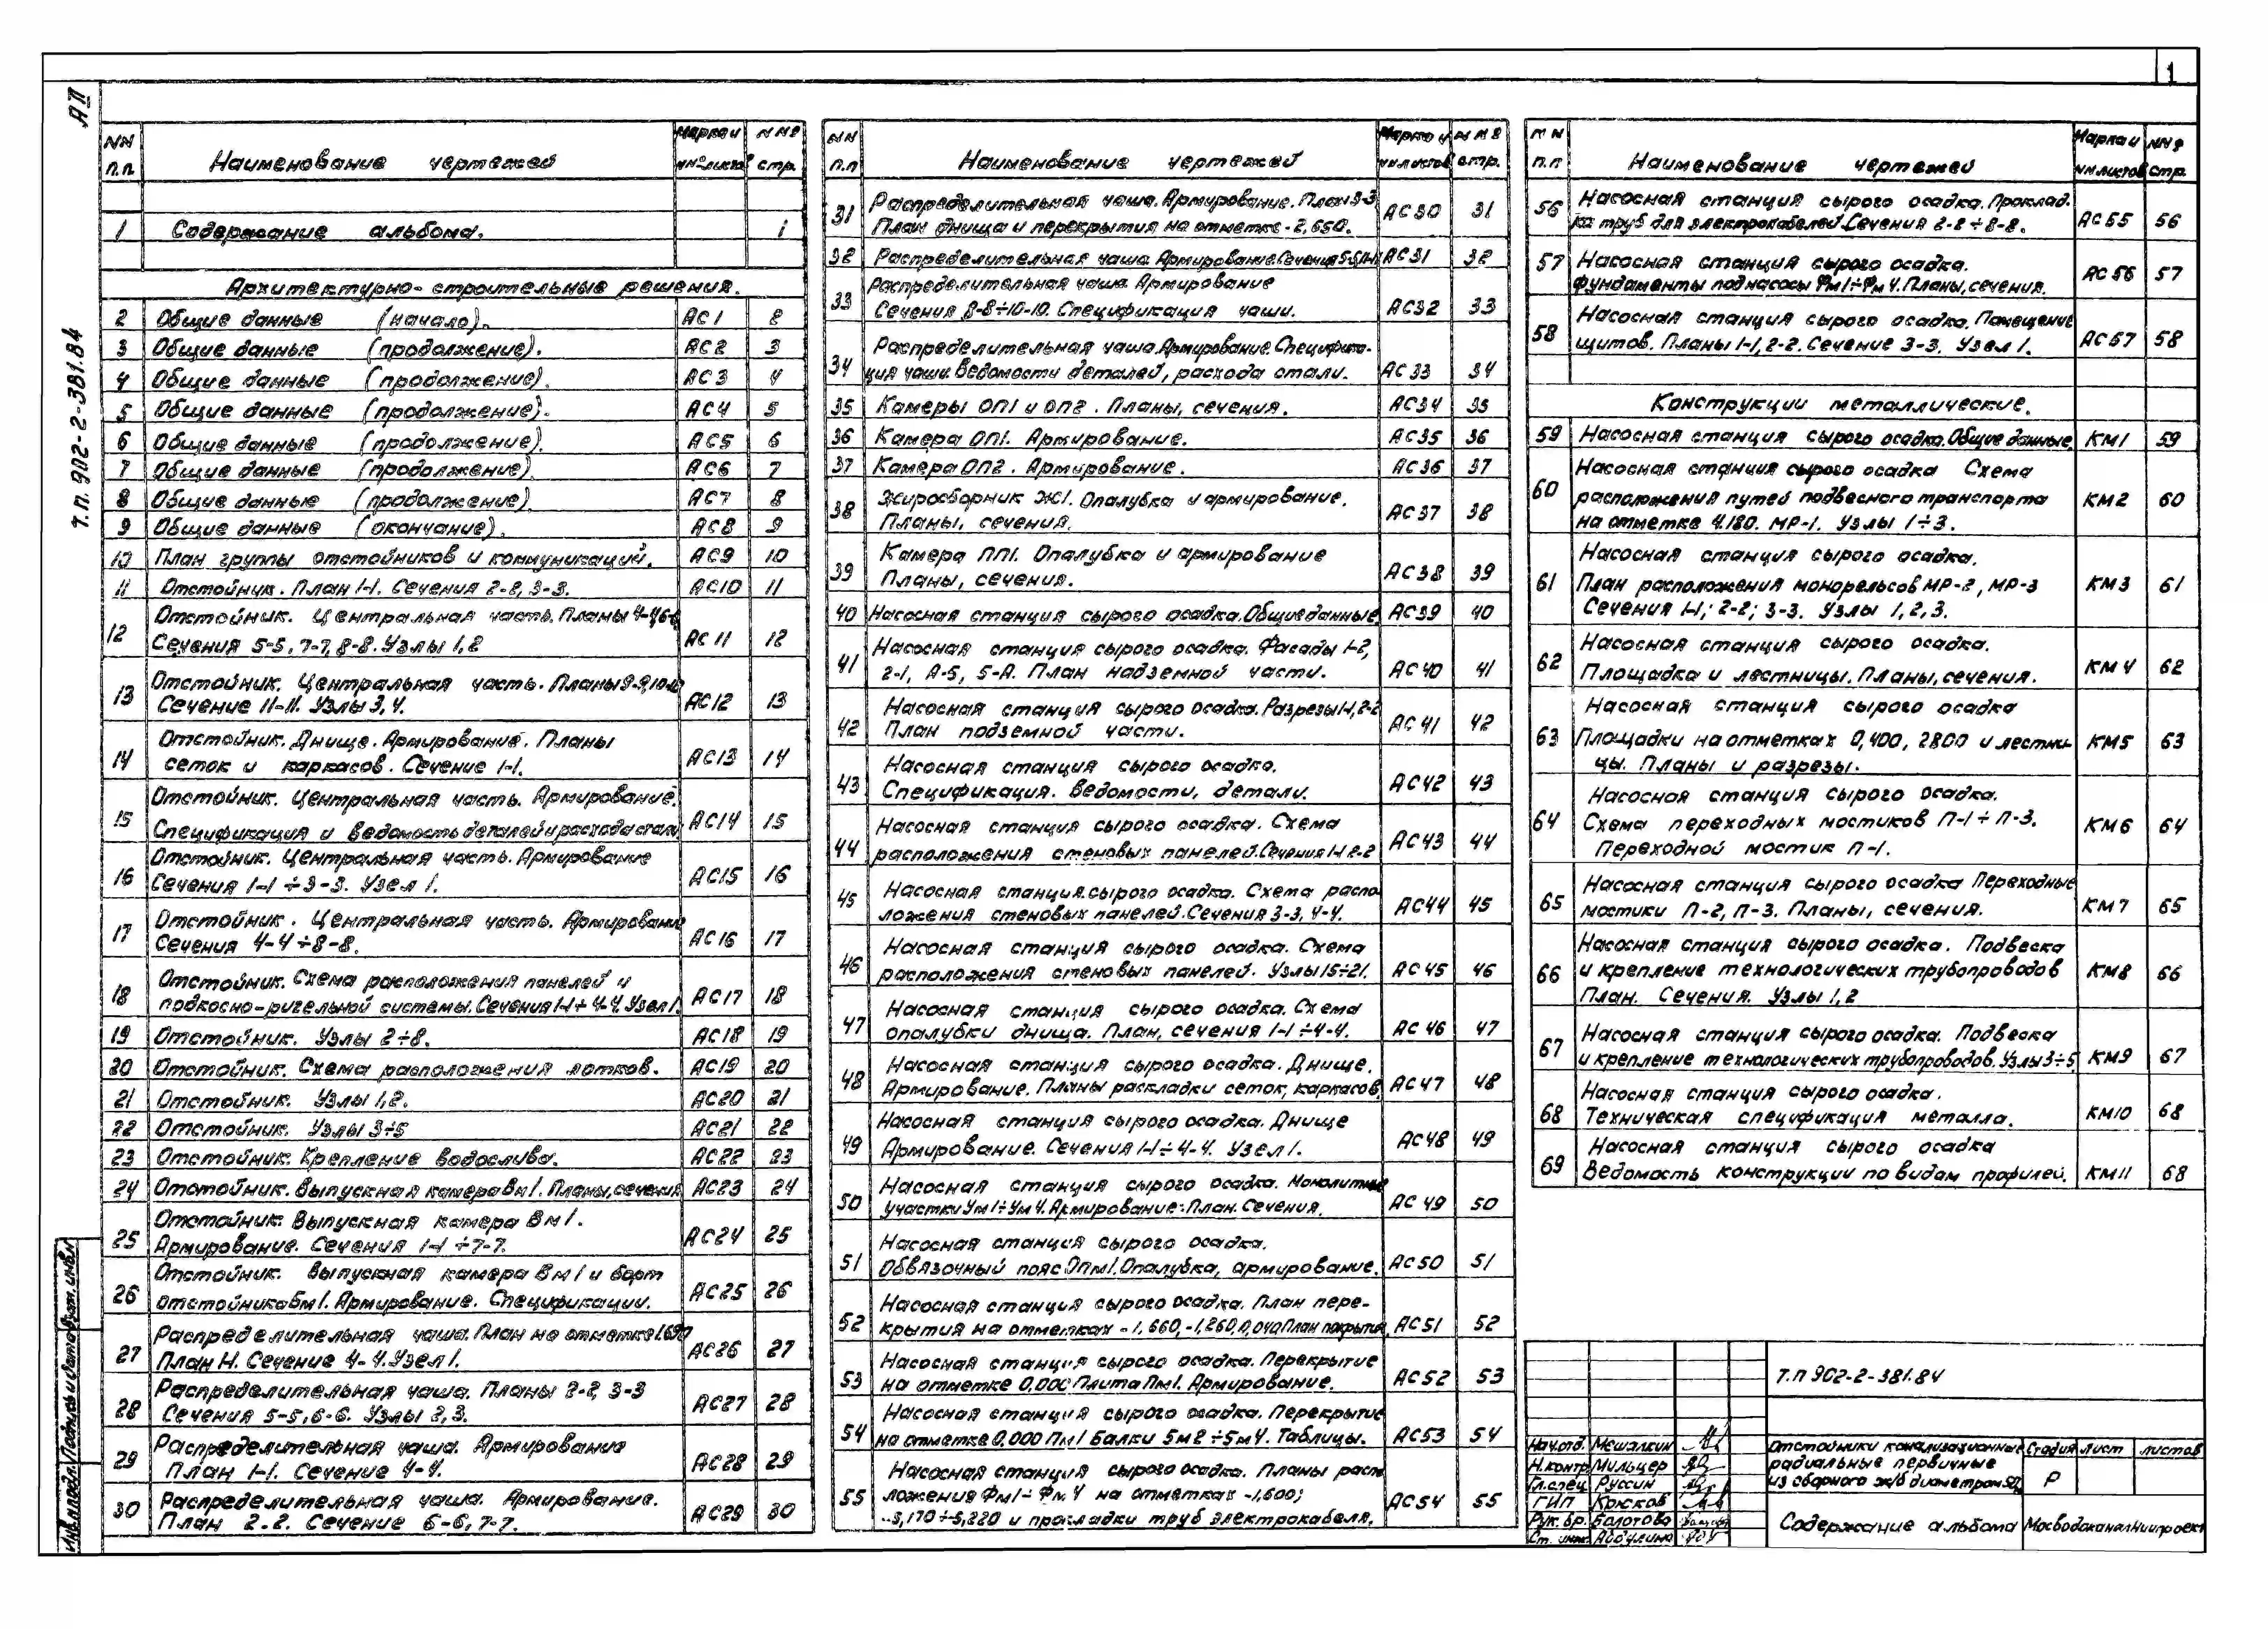 1
АII
т.п. 902-2-381.84
NN п.п. Наименование чертежей Марка и NN листов NNº стр.
1 Содержание альбома. 1
Архитектурно-строительные решения.
2 Общие данные (начало). АС1 2
3 Общие данные (продолжение). АС2 3
4 Общие данные (продолжение). АС3 4
5 Общие данные (продолжение). АС4 5
6 Общие данные (продолжение). АС5 6
7 Общие данные (продолжение). АС6 7
8 Общие данные (продолжение). АС7 8
9 Общие данные (окончание). АС8 9
10 План группы отстойников и коммуникаций. АС9 10
11 Отстойник. План 1-1. Сечения 2-2, 3-3. АС10 11
Отстойник. Центральная часть. Планы 4-4, 6-6
12 Сечения 5-5, 7-7, 8-8. Узлы 1, 2 АС11 12
Отстойник. Центральная часть. Планы 9-9, 10-10
13 Сечение 11-11. Узлы 3, 4. АС12 13
Отстойник. Днище. Армирование. Планы
14 сеток и каркасов. Сечение 1-1. АС13 14
Отстойник. Центральная часть. Армирование.
15 Спецификация и ведомость деталей и расхода стали АС14 15
Отстойник. Центральная часть. Армирование
16 Сечения 1-1 ÷ 3-3. Узел 1. АС15 16
Отстойник. Центральная часть. Армирование
17 Сечения 4-4 ÷ 8-8. АС16 17
Отстойник. Схема расположения панелей и
18 подкосно-ригельной системы. Сечения 1-1 ÷ 4-4. Узел 1. АС17 18
19 Отстойник. Узлы 2÷8. АС18 19
20 Отстойник. Схема расположения лотков. АС19 20
21 Отстойник. Узлы 1, 2. АС20 21
22 Отстойник. Узлы 3÷5 АС21 22
23 Отстойник. Крепление водослива. АС22 23
24 Отстойник. Выпускная камера Вм1. Планы, сечения АС23 24
Отстойник. Выпускная камера Вм1.
25 Армирование. Сечения 1-1 ÷ 7-7. АС24 25
Отстойник. Выпускная камера Вм1 и борт
26 отстойника Бм1. Армирование. Спецификации. АС25 26
Распределительная чаша. План на отметке 1.690
27 План Н. Сечение 4-4. Узел 1. АС26 27
Распределительная чаша. Планы 2-2, 3-3
28 Сечения 5-5, 6-6. Узлы 2, 3. АС27 28
Распределительная чаша. Армирование
29 План 1-1. Сечение 4-4. АС28 29
Распределительная чаша. Армирование.
30 План 2-2. Сечение 6-6, 7-7. АС29 30
NN п.п Наименование чертежей Марка и NN листов NNº стр.
Распределительная чаша. Армирование. План 3-3
31 План днища и перекрытия на отметке -2,650. АС30 31
32 Распределительная чаша. Армирование. Сечения 5-5, АС31 32
Распределительная чаша. Армирование
33 Сечения 8-8÷10-10. Спецификация чаши. АС32 33
Распределительная чаша. Армирование. Специфика-
34 ция чаши. Ведомости деталей, расхода стали. АС33 34
35 Камеры ОП1 и ОП2. Планы, сечения. АС34 35
36 Камера ОП1. Армирование. АС35 36
37 Камера ОП2. Армирование. АС36 37
Жиросборник Ж1. Опалубка и армирование.
38 Планы, сечения. АС37 38
Камера ПП1. Опалубка и армирование
39 Планы, сечения. АС38 39
40 Насосная станция сырого осадка. Общие данные АС39 40
Насосная станция сырого осадка. Фасады 1-2,
41 2-1, А-Б, Б-А. План надземной части. АС40 41
Насосная станция сырого осадка. Разрезы 1-1, 2-2
42 План подземной части. АС41 42
Насосная станция сырого осадка.
43 Спецификация. Ведомости, детали. АС42 43
Насосная станция сырого осадка. Схема
44 расположения стеновых панелей. Сечения 1-1, 2-2 АС43 44
Насосная станция сырого осадка. Схема распо-
45 ложения стеновых панелей. Сечения 3-3, 4-4. АС44 45
Насосная станция сырого осадка. Схема
46 расположения стеновых панелей. Узлы 15÷21. АС45 46
Насосная станция сырого осадка. Схема
47 опалубки днища. План, сечения 1-1 ÷ 4-4. АС46 47
Насосная станция сырого осадка. Днище.
48 Армирование. Планы раскладки сеток, каркасов. АС47 48
Насосная станция сырого осадка. Днище
49 Армирование. Сечения 1-1 ÷ 4-4. Узел 1. АС48 49
Насосная станция сырого осадка. Монолитные
50 участки Ум1÷Ум4. Армирование. План. Сечения. АС49 50
Насосная станция сырого осадка.
51 Обвязочный пояс ОПм1. Опалубка, армирование. АС50 51
Насосная станция сырого осадка. План пере-
52 крытия на отметках -1,660, -1,260, 0,040 План покрытия АС51 52
Насосная станция сырого осадка. Перекрытие
53 на отметке 0,000 Плита Пм1. Армирование. АС52 53
Насосная станция сырого осадка. Перекрытие
54 на отметке 0,000 Пм1 Балки Бм2÷Бм4. Таблицы. АС53 54
Насосная станция сырого осадка. Планы распо
55 ложения Фм1÷Фм4 на отметках -1,600;
-5,170÷5,220 и прокладки труб электрокабеля. АС54 55
NN п.п Наименование чертежей Марка и NN листов NNº стр.
Насосная станция сырого осадка. Проклад.
56 ка труб для электрокабелей. Сечения 2-2 ÷ 8-8. АС55 56
57 Насосная станция сырого осадка.
Фундаменты под насосы Фм1÷Фм4. Планы, сечения. АС56 57
Насосная станция сырого осадка. Помещение
58 щитов. Планы 1-1, 2-2. Сечение 3-3. Узел 1. АС57 58
Конструкции металлические.
59 Насосная станция сырого осадка. Общие данные. КМ1 59
Насосная станция сырого осадка Схема
60 расположения путей подвесного транспорта КМ2 60
на отметке 4.180. МР-1. Узлы 1÷3.
Насосная станция сырого осадка.
61 План расположения монорельсов МР-2, МР-3 КМ3 61
Сечения 1-1; 2-2; 3-3. Узлы 1, 2, 3.
Насосная станция сырого осадка.
62 Площадка и лестницы. Планы, сечения. КМ4 62
Насосная станция сырого осадка
63 Площадки на отметках 0,400, 2800 и лестни- КМ5 63
цы. Планы и разрезы.
Насосная станция сырого осадка.
64 Схема переходных мостиков П-1 ÷ П-3. КМ6 64
Переходной мостик П-1.
Насосная станция сырого осадка Переходные
65 мостики П-2, П-3. Планы, сечения. КМ7 65
Насосная станция сырого осадка. Подвеска
66 и крепление технологических трубопроводов КМ8 66
План. Сечения. Узлы 1, 2
Насосная станция сырого осадка. Подвеска
67 и крепление технологических трубопроводов. Узлы 3÷5 КМ9 67
Насосная станция сырого осадка.
68 Техническая спецификация металла. КМ10 68
Насосная станция сырого осадка
69 Ведомость конструкции по видам профилей. КМ11 68
Т.П 902-2-381.84
Нач.отд. Мешалкин
Н.контр Мильцер
Гл.спец Руссин
ГИП Крюков
Рук. бр. Болотова
Ст. инж.
Отстойники канализационные
радиальные первичные
из сборного ж/б диаметром 50
Стадия лист листов
Р
Содержание альбома
МосводоканалНиипроект
Инв.N подл. Подпись и дата Взам. инв.N